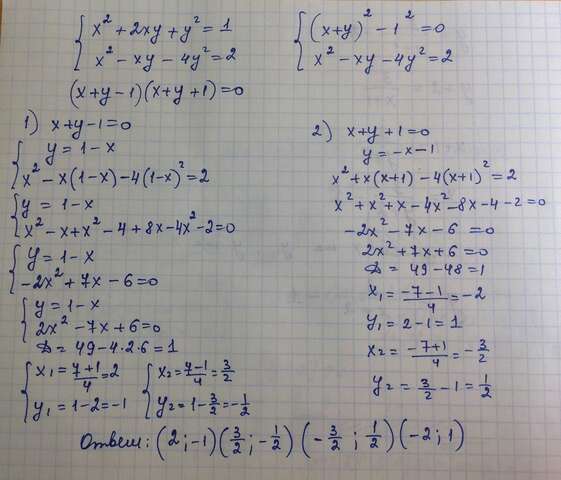 { x² + 2xy + y² = 1
x² - xy - 4y² = 2
{ (x+y)² - 1² = 0
x² - xy - 4y² = 2
(x+y-1)(x+y+1) = 0
1) x+y-1=0
{ y = 1-x
x² - x(1-x) - 4(1-x)² = 2
{ y = 1-x
x² - x + x² - 4 + 8x - 4x² - 2 = 0
{ y = 1-x
-2x² + 7x - 6 = 0
{ y = 1-x
2x² - 7x + 6 = 0
D = 49 - 4·2·6 = 1
{ x₁ = (7+1)/4 = 2
y₁ = 1-2 = -1
{ x₂ = (7-1)/4 = 3/2
y₂ = 1 - 3/2 = -1/2
2) x+y+1=0
y = -x-1
x² + x(x+1) - 4(x+1)² = 2
x² + x² + x - 4x² - 8x - 4 - 2 = 0
-2x² - 7x - 6 = 0
2x² + 7x + 6 = 0
D = 49 - 48 = 1
x₁ = (-7-1)/4 = -2
y₁ = 2-1 = 1
x₂ = (-7+1)/4 = -3/2
y₂ = 3/2 - 1 = 1/2
Ответ: (2; -1) (3/2; -1/2) (-3/2; 1/2) (-2; 1)